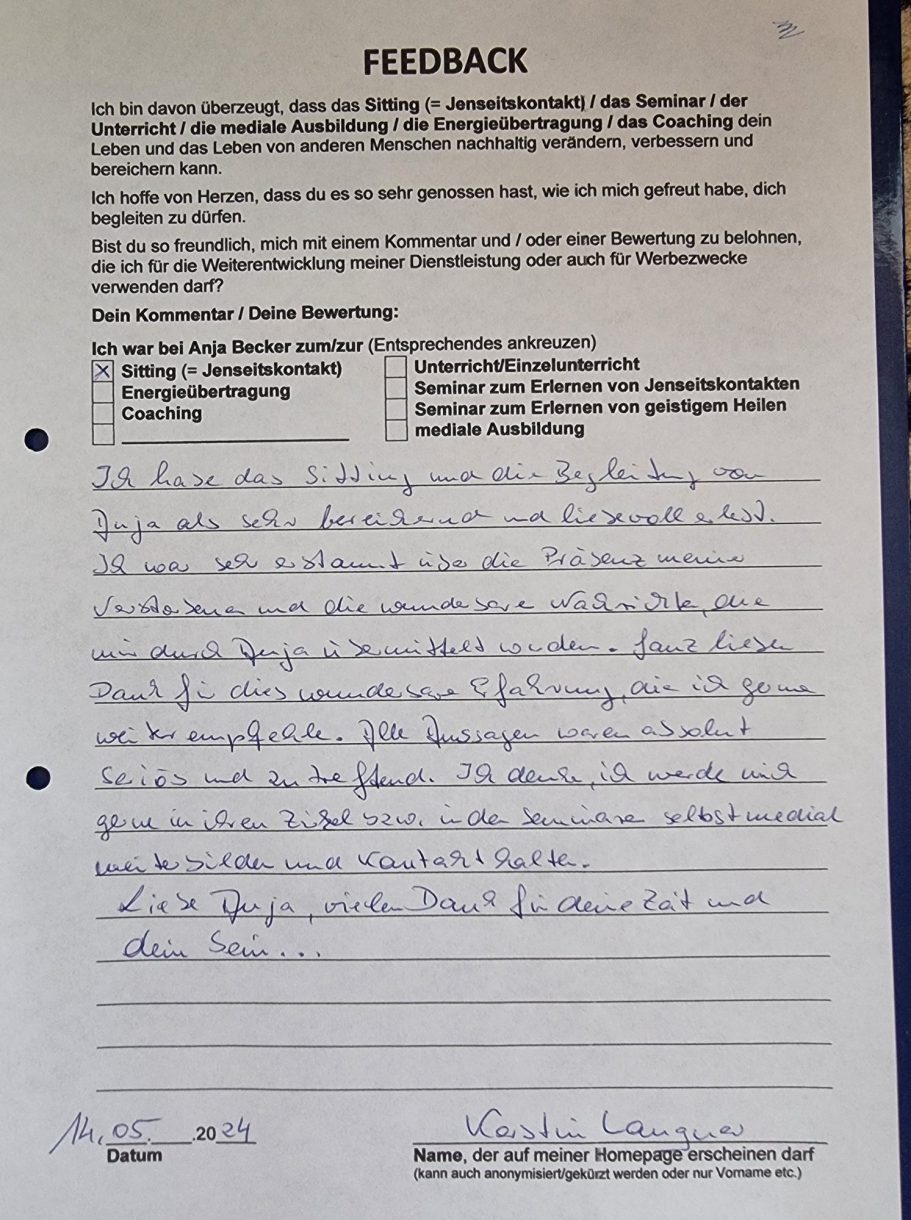 FEEDBACK
Ich bin davon überzeugt, dass das Sitting (= Jenseitskontakt) / das Seminar / der
Unterricht / die mediale Ausbildung / die Energieübertragung / das Coaching dein
Leben und das Leben von anderen Menschen nachhaltig verändern, verbessern und
bereichern kann.
Ich hoffe von Herzen, dass du es so sehr genossen hast, wie ich mich gefreut habe, dich
begleiten zu dürfen.
Bist du so freundlich, mich mit einem Kommentar und / oder einer Bewertung zu belohnen,
die ich für die Weiterentwicklung meiner Dienstleistung oder auch für Werbezwecke
verwenden darf?
Dein Kommentar / Deine Bewertung:
Ich war bei Anja Becker zum/zur (Entsprechendes ankreuzen)
X Sitting (= Jenseitskontakt)
Energieübertragung
Coaching
Unterricht/Einzelunterricht
Seminar zum Erlernen von Jenseitskontakten
Seminar zum Erlernen von geistigem Heilen
mediale Ausbildung
Ich habe das Sitting und die Begleitung von
Anja als sehr bereichernd und liebevoll erlebt.
Ich war sehr erstaunt über die Präsenz meiner
Verstorbenen und die wunderbare Nachricht, die
mir durch Anja übermittelt wurden. Ganz lieben
Dank für dies wunderbare Erfahrung, die ich gerne
weiterempfehle. Alle Aussagen waren absolut
seriös und zutreffend. Ich denke, ich werde mich
gerne in ihren Zirkel bzw. in den Seminaren selbst medial
weiterbilden und Kontakt halten.
Liebe Anja, vielen Dank für deine Zeit und
dein Sein...
14.05.2024
Datum
Kerstin Langner
Name, der auf meiner Homepage erscheinen darf
(kann auch anonymisiert/gekürzt werden oder nur Vorname etc.)